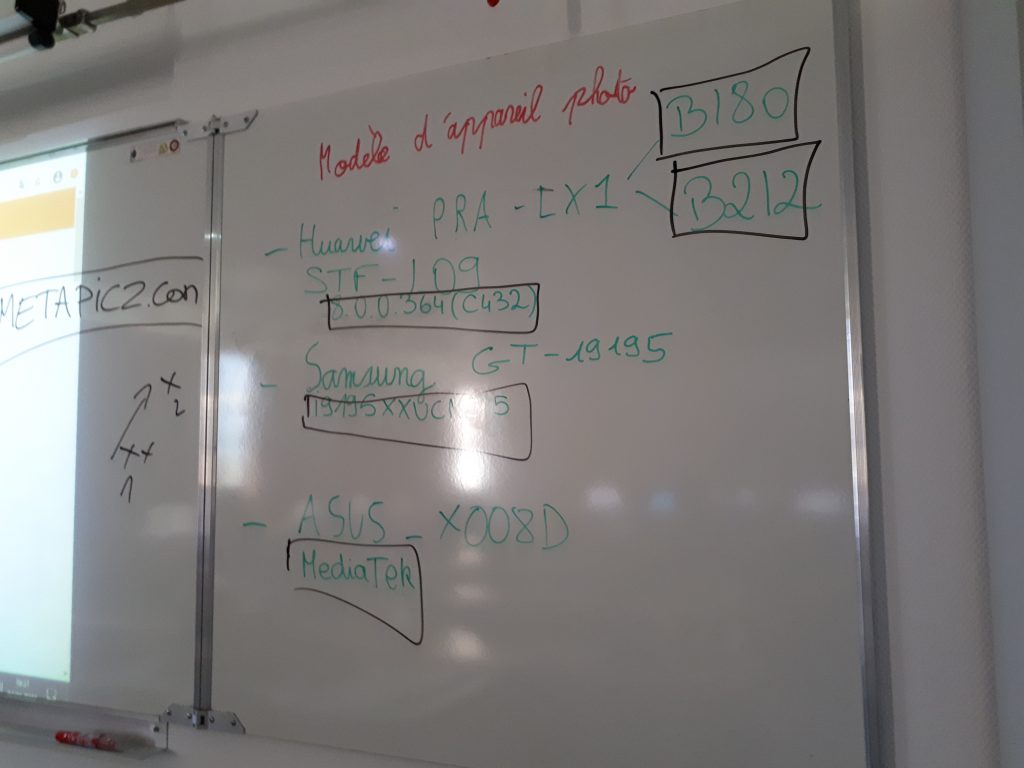 METAPICZ.Com
X
2
XX
1
Modèle d'appareil photo
B180
- Huawei PRA - LX1
B212
STF - L09
8.0.0.364(C432)
- Samsung GT-19195
19195XXUCN 5
- ASUS_X008D
MediaTek